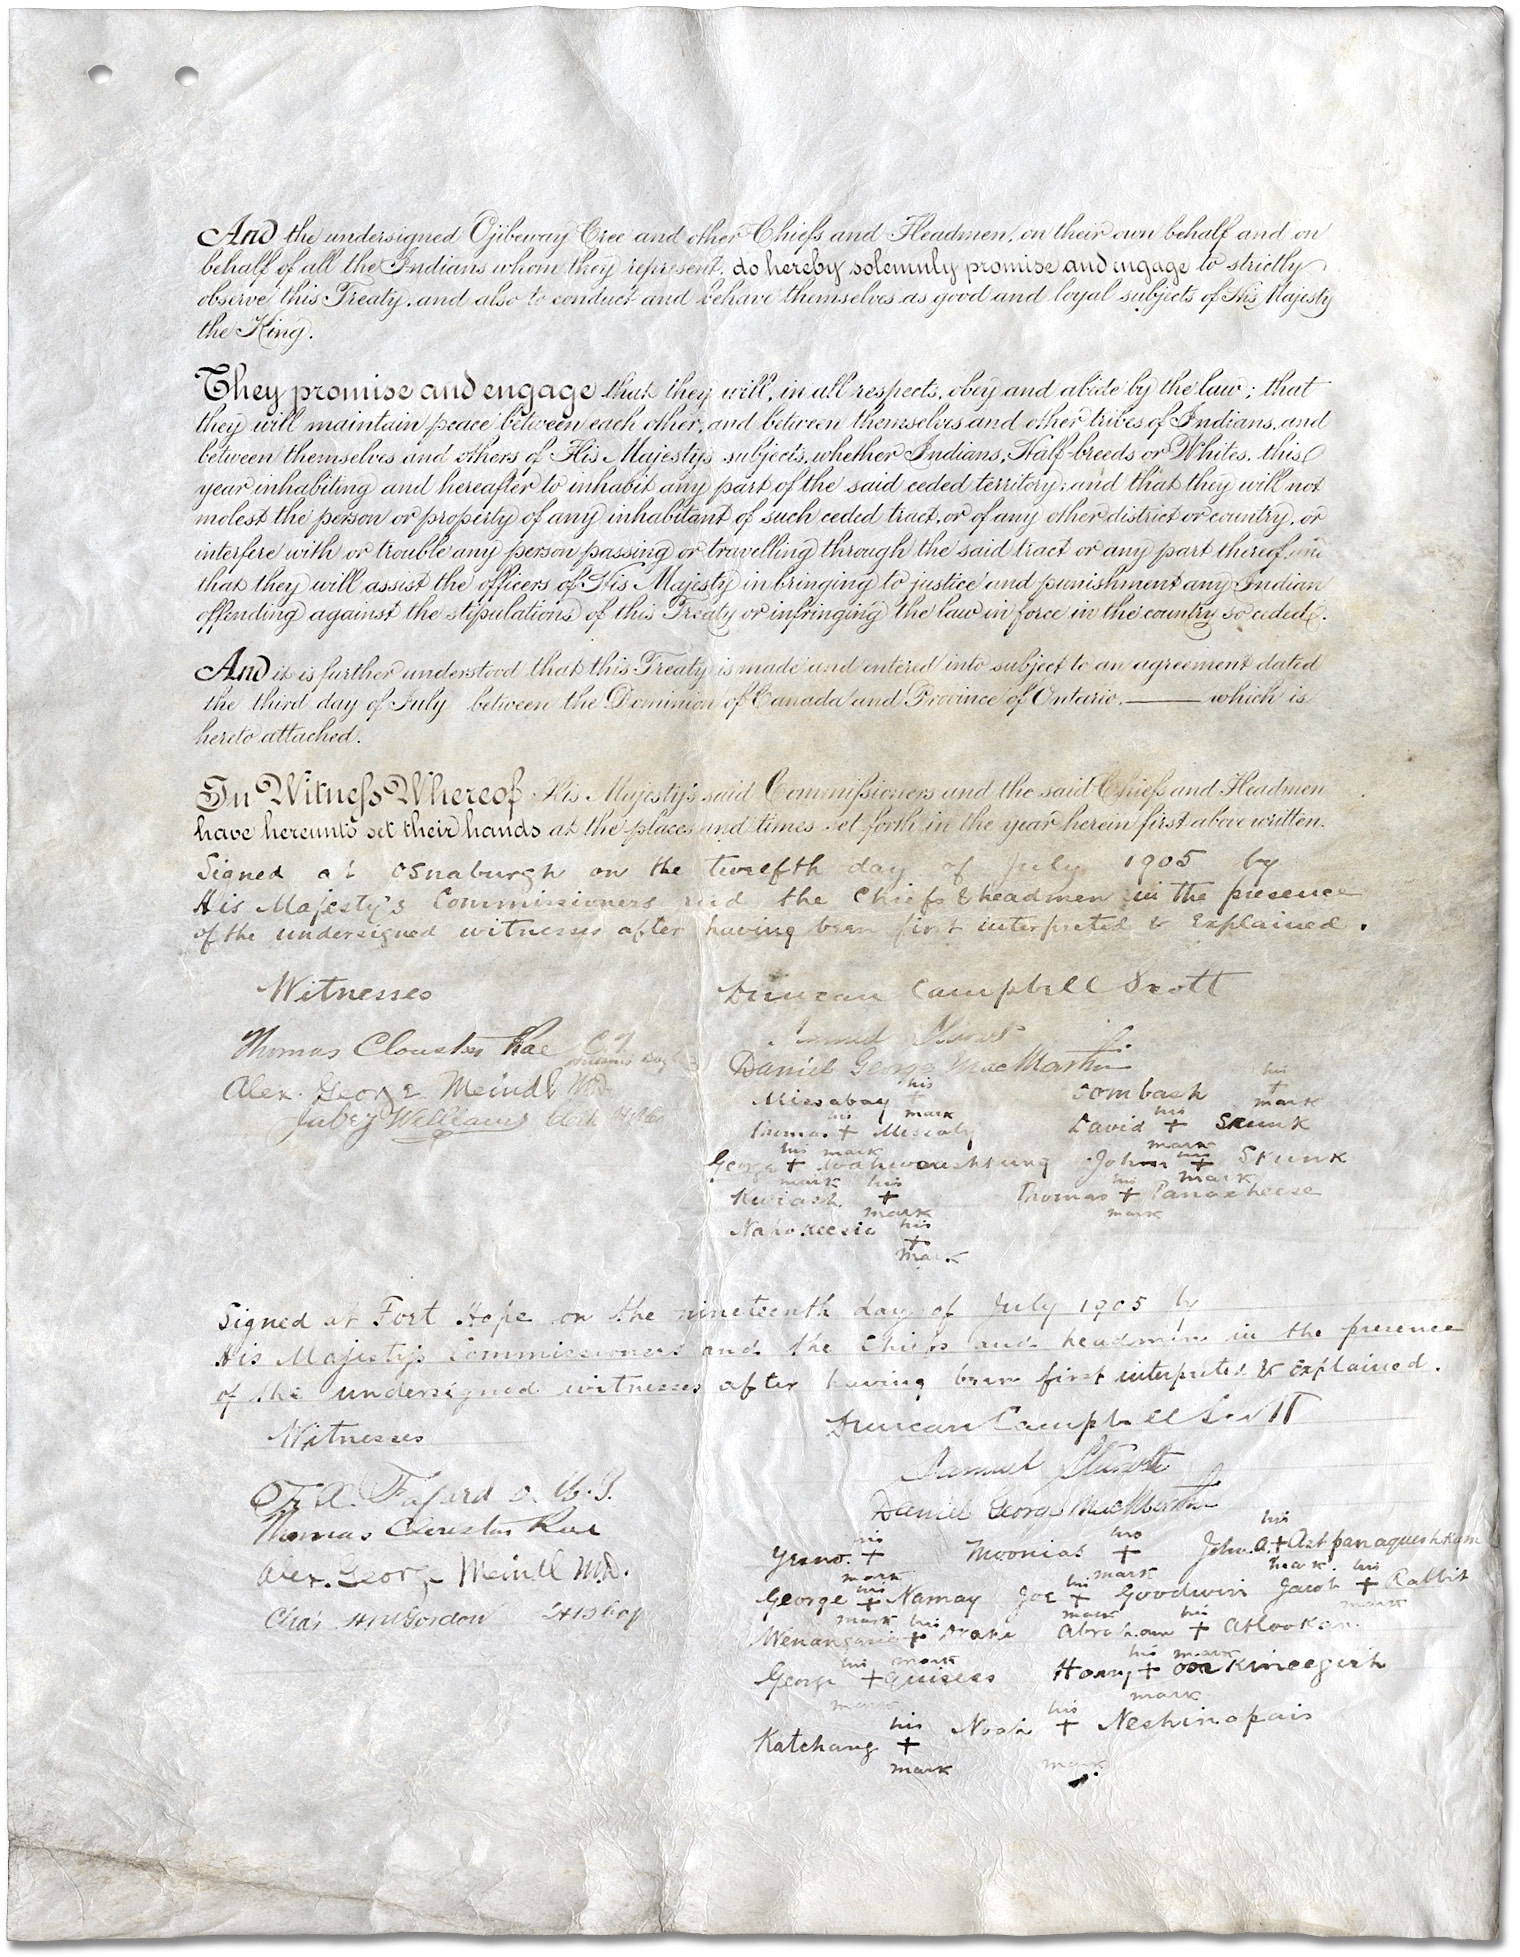 And the undersigned Ojibeway Cree and other Chiefs and Headmen, on their own behalf and on
behalf of all the Indians whom they represent, do hereby solemnly promise and engage to strictly
observe this Treaty, and also to conduct and behave themselves as good and loyal subjects of His Majesty
the King.
They promise and engage that they will, in all respects, obey and abide by the law; that
they will maintain peace between each other, and between themselves and other tribes of Indians, and
between themselves and others of His Majesty's subjects, whether Indians, Half-breeds or Whites, this
year inhabiting and hereafter to inhabit any part of the said ceded territory; and that they will not
molest the person or property of any inhabitant of such ceded tract, or of any other district or country, or
interfere with or trouble any person passing or travelling through the said tract or any part thereof, and
that they will assist the officers of His Majesty in bringing to justice and punishment any Indian
offending against the stipulations of this Treaty or infringing the law in force in the country so ceded.
And it is further understood that this Treaty is made and entered into subject to an agreement dated
the third day of July between the Dominion of Canada and Province of Ontario. which is
hereto attached.
In Witness Whereof His Majesty's said Commissioners and the said Chiefs and Headmen
have hereunto set their hands at the places and times set forth in the year herein first above written.
Signed at Osnaburgh on the twelfth day of July 1905 by
His Majesty's Commissioners and the Chiefs & headmen in the presence
of the undersigned witnesses after having been first interpreted & Explained.
Witnesses Duncan Campbell Scott
Samuel Stewart
Thomas Clouston Rae C.T.
Daniel George MacMartin
Alex. George Meindl M.D.
Missabay his + mark Oombash his + mark
Jabez Williams
Thomas his + mark Missabay David his + mark Skunk
George his + mark Wahwaashkung John his + mark Skunk
Kwiash his + mark Thomas his + mark Panacheese
Nahokeesic his + mark
Signed at Fort Hope on the nineteenth day of July 1905 by
His Majesty's Commissioners and the Chiefs and headmen in the presence
of the undersigned witnesses after having been first interpreted & explained.
Witnesses Duncan Campbell Scott
Samuel Stewart
F. X. Fafard
Daniel George MacMartin
Thomas Clouston Rae
Yesno his + mark Moonias his + mark John A. his + mark Astpanaqueshkum
Alex. George Meindl M.D.
George his + mark Namay Joe his + mark Goodwin Jacob his + mark Rabbit
Chas H M Gordon H B Coy
Wenangasie his + mark Drake Abraham his + mark Atlookan
George his + mark Quisees Harry his + mark Ooskineegish
Katchang his + mark Noah his + mark Neshinapais